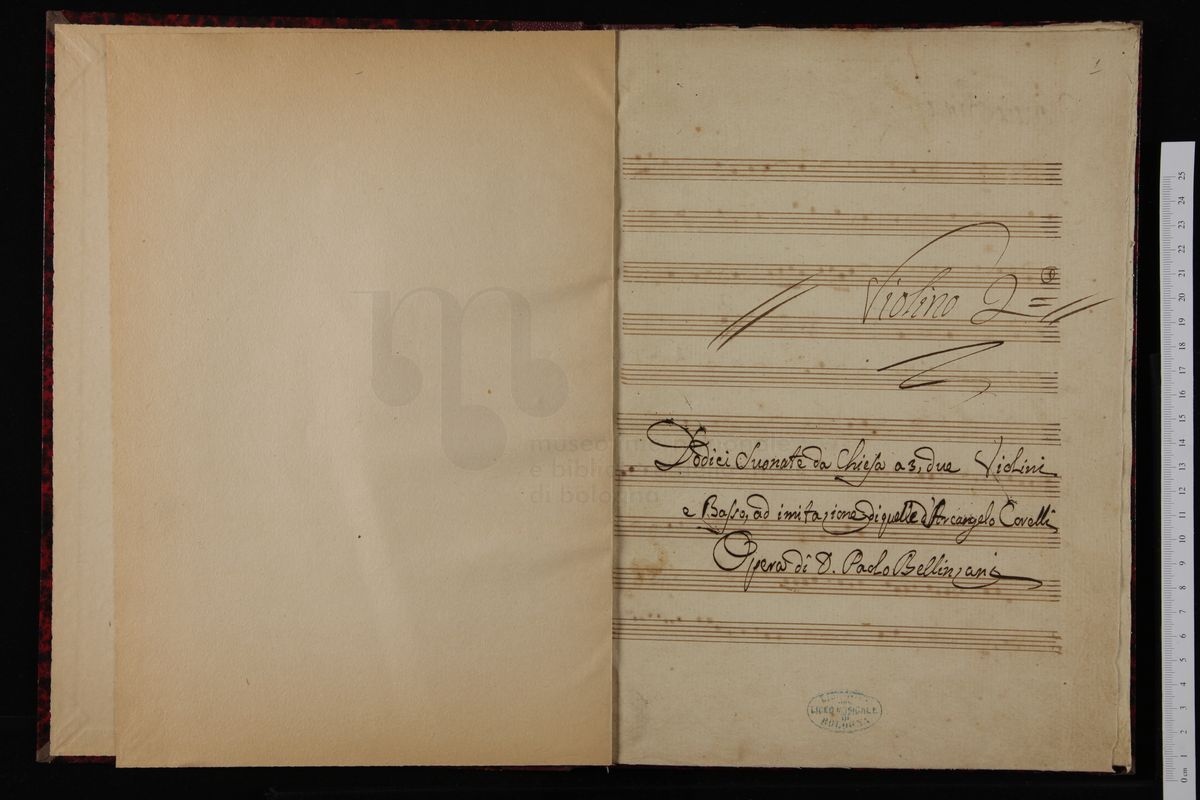 1
Violino 2º
Dodici Suonate da Chiesa a 3, due Violini
e Basso, ad imitazione di quelle d'Arcangelo Corelli
Opera di D. Paolo Bellinzani
LICEO MUSICALE
DI
BOLOGNA
museo
e biblio
di bologna
0 cm 1 2 3 4 5 6 7 8 9 10 11 12 13 14 15 16 17 18 19 20 21 22 23 24 25